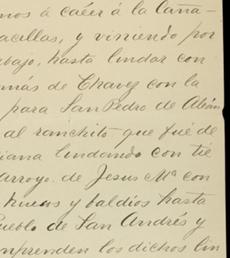 mos á caéer á la Caña-
acillas, y viniendo por
abajo, hasta lindar con
más de Chavez con la
para San Pedro de
al ranchito que fué de
iana lindando con tie
arroyo de Jesus Mª con
y baldios hasta
Pueblo de San Andrés y
mprenden los dichos lin